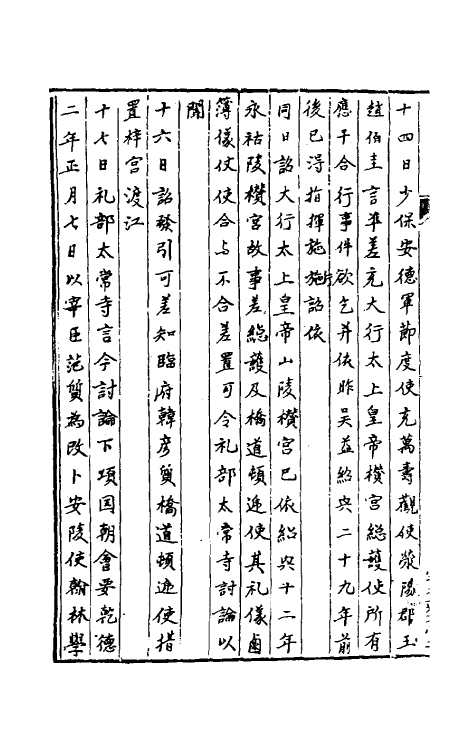 十四日少保安德軍節度使充萬壽觀使滎陽郡王
趙伯圭言準差充大行太上皇帝欑宮總護使所有
應干合行事件欲乞并依昨吳益紹興二十九年前
後已得指揮施行詔依
同日詔大行太上皇帝山陵欑宮已依紹興十二年
永祐陵欑宮故事差總護及橋道頓逓使其礼儀鹵
簿儀仗使合与不合差置可令礼部太常寺討論以
聞
十六日詔發引可差知臨府韓彥質橋道頓逓使措
置梓宮渡江
十七日礼部太常寺言今討論下項国朝會要乾德
二年正月七日以宰臣范質為改卜安陵使翰林學